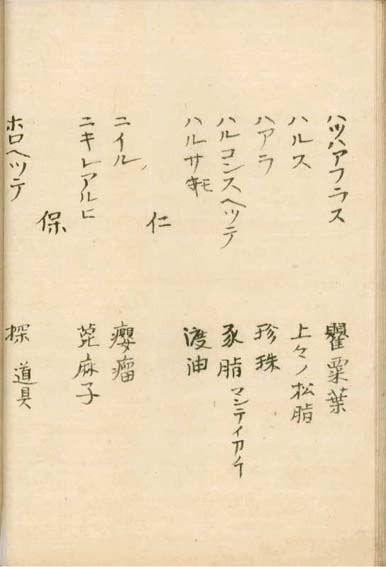 ハツハアフラス 罌粟葉
ハルス 上々ノ松脂
ハアラ 珍珠
ハルコンスヘツテ 豕脂 マンテイカ
ハルサモ 渡油
仁
ニイル 癭瘤
ニキレアルヒ 萞麻子
保
ホロヘツテ 探道具